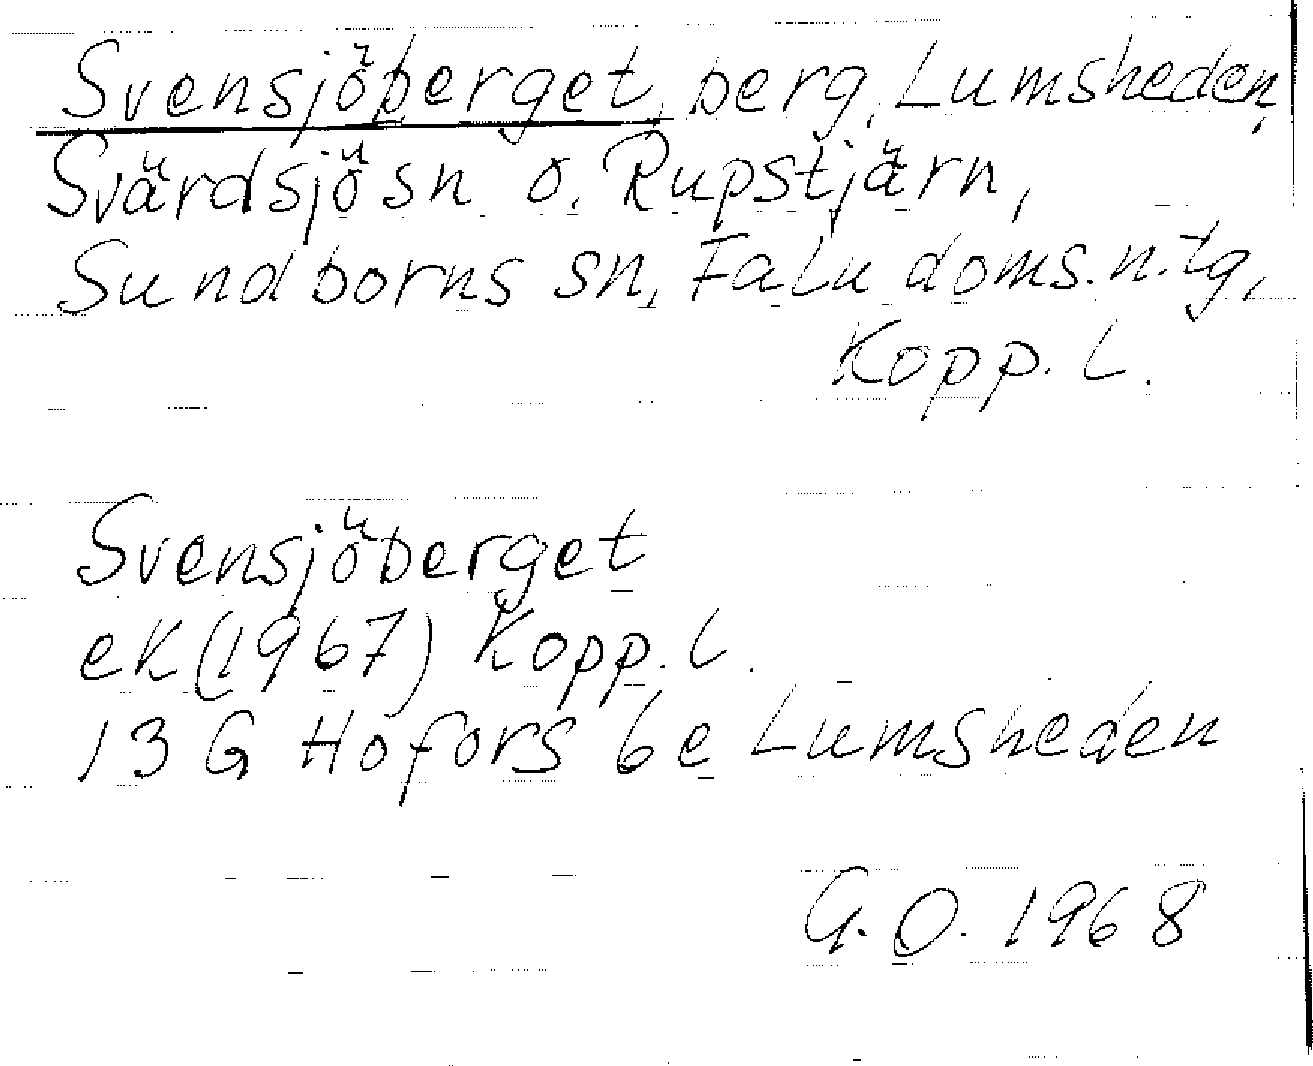 Svensjöberget, berg, Lumsheden,
Svärdsjö sn o. Rupstjärn,
Sundborns sn, Falu doms.n.tg,
Kopp. L.
Svensjöberget
ek (1967) Kopp. L.
13 G Hofors 6e Lumsheden
G. O. 1968